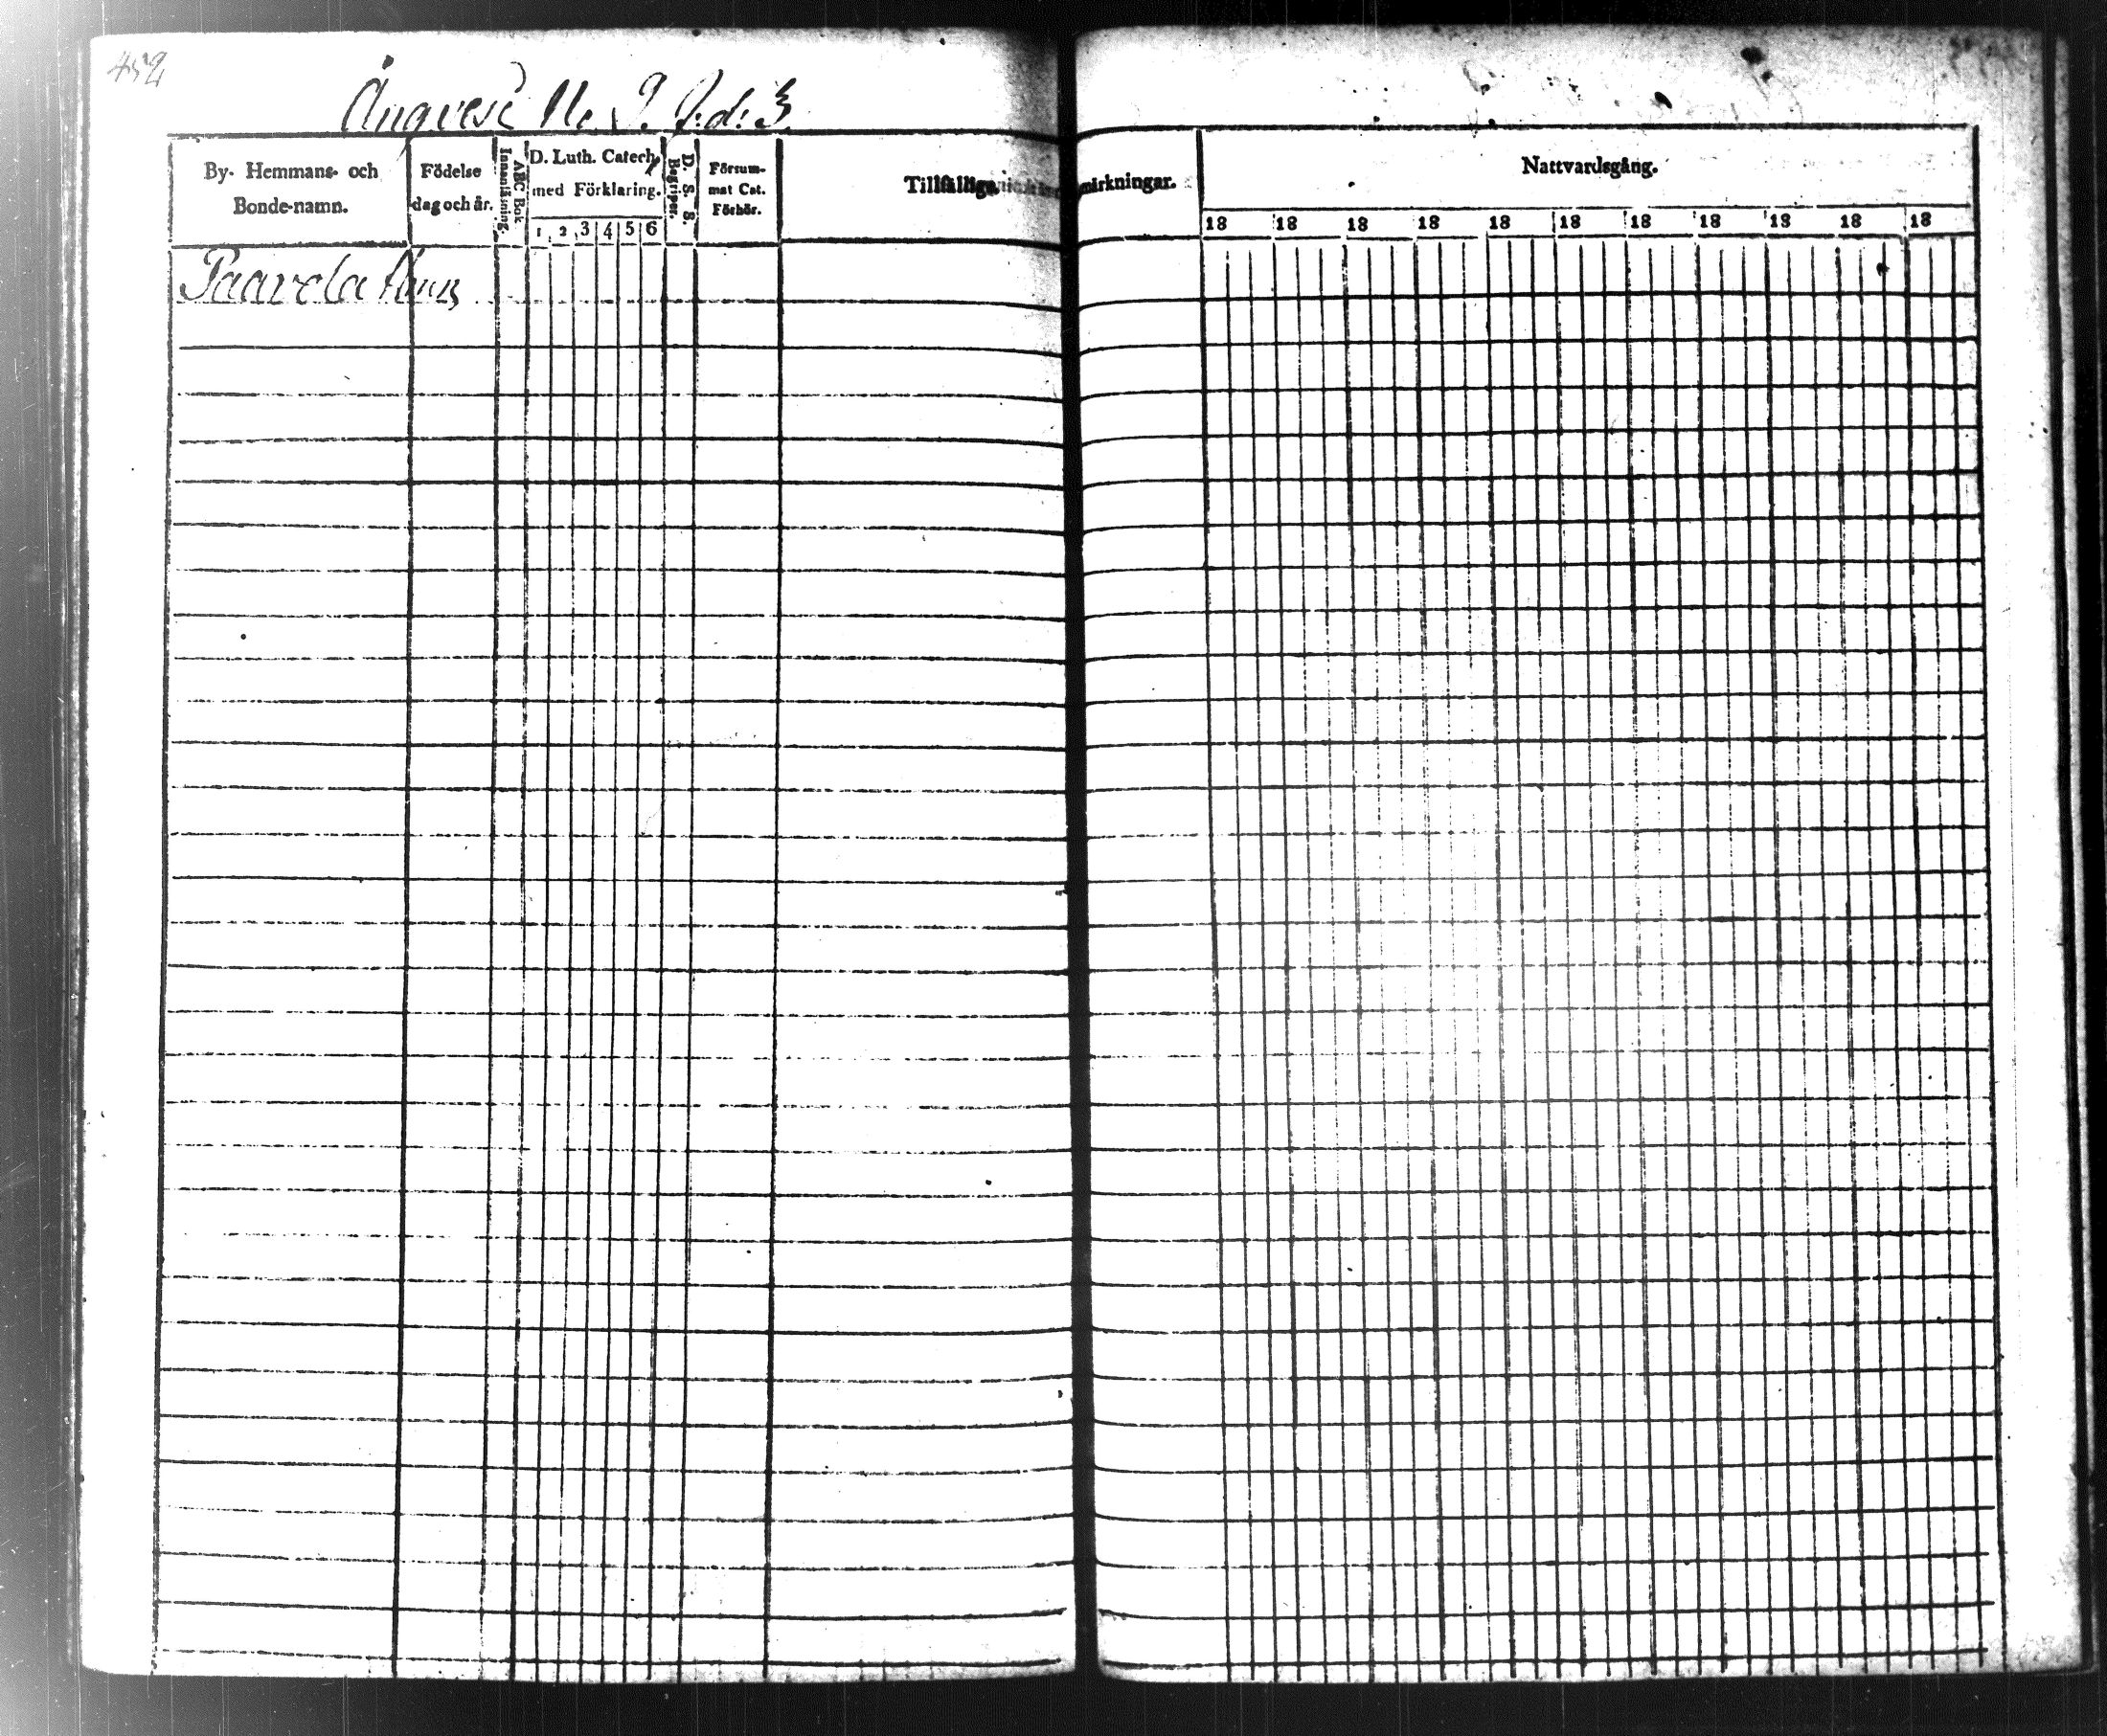 452
Ångvesi No 9. J:d: 3.
By- Hemmans- och
Bonde-namn.
Födelse
dag och år.
ABC Bok
Innanläsning.
D. Luth. Catech.
med Förklaring.
1 2 3 4 5 6
D. S. S.
Begriper.
Försum-
mat Cat.
Förhör.
Tillfälliga
märkningar.
Nattvardsgång.
18 18 18 18 18 18 18 18 18 18 18
Paavola